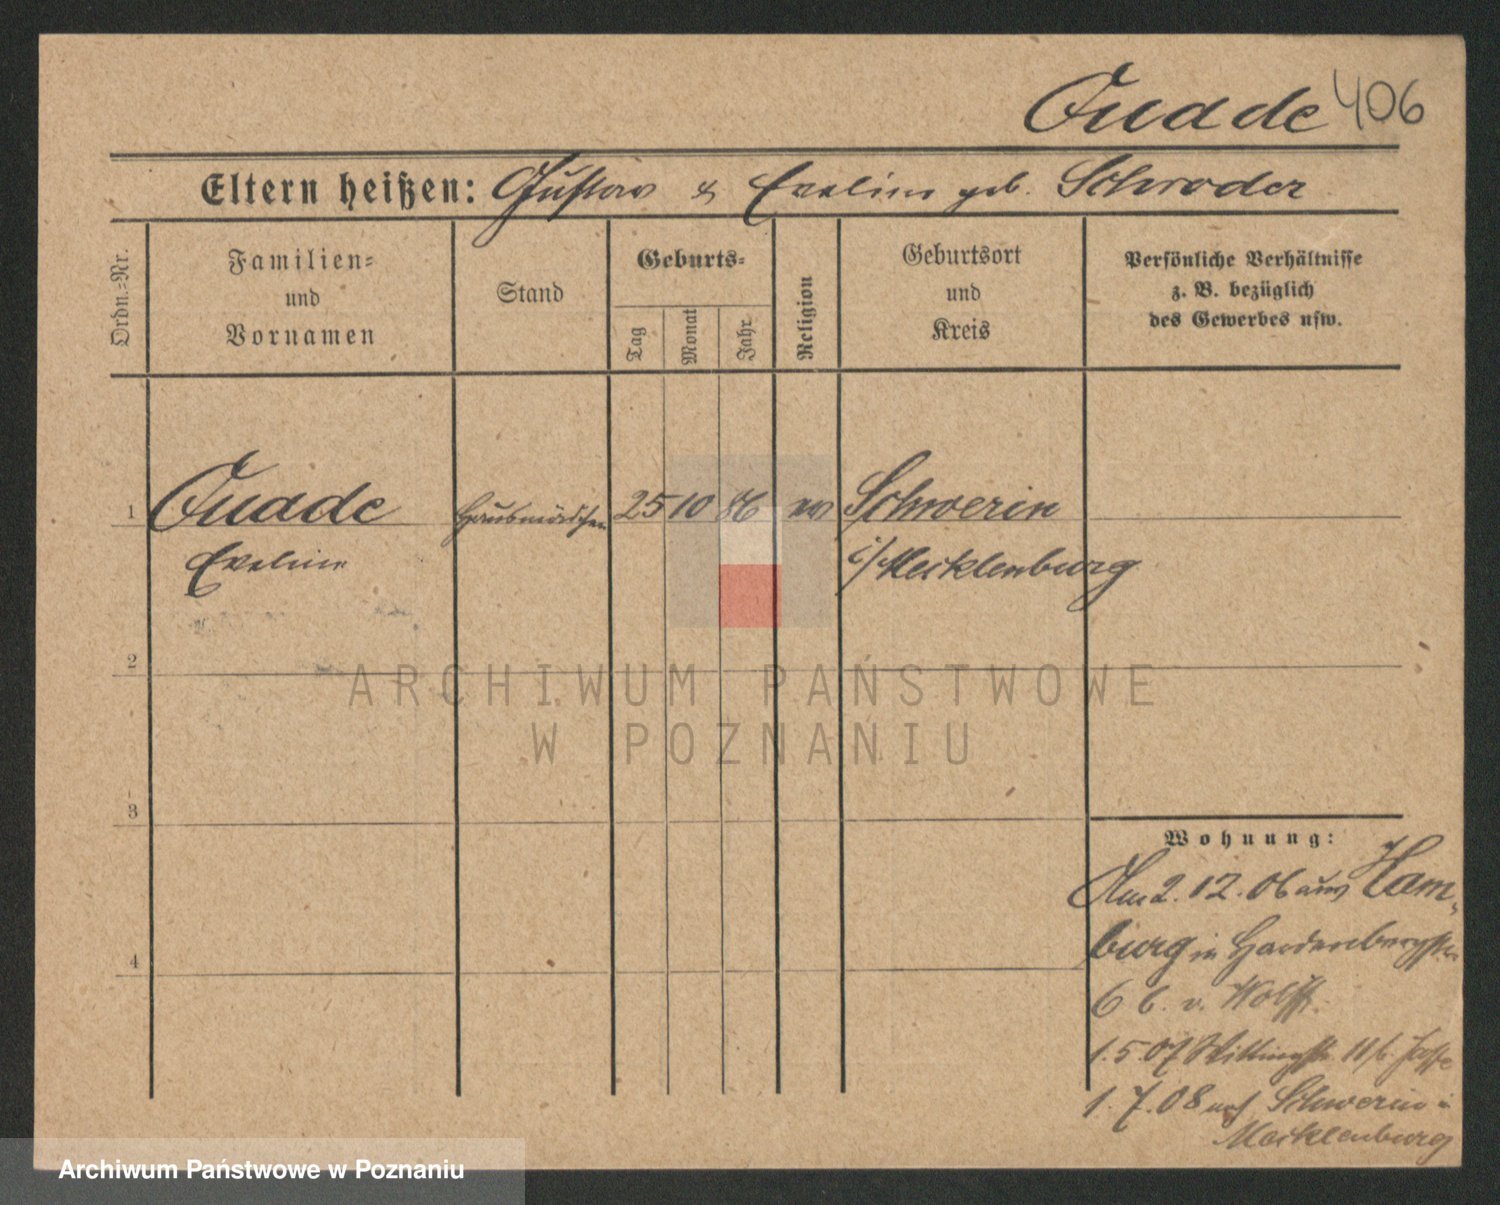 Quade 406
Eltern heißen: Gustav & Eveline geb. Schroder
Ordn.-Nr.
Familien-
und
Vornamen
Stand
Geburts-
Tag
Monat
Jahr
Religion
Geburtsort
und
Kreis
Persönliche Verhältnisse
z. B. bezüglich
des Gewerbes usw.
1 Quade Hausmädchen 25 10 86 ev Schwerin
Eveline i/Mecklenburg
2
ARCHIWUM PAŃSTWOWE
W POZNANIU
3
4
Wohnung:
Am 2.12.06 aus Ham-
burg in Hardenbergstr.
6 b. v. Wolff.
1.5.07 11 b.
1.7.08 auf Schwerin i
Mecklenburg
Archiwum Państwowe w Poznaniu